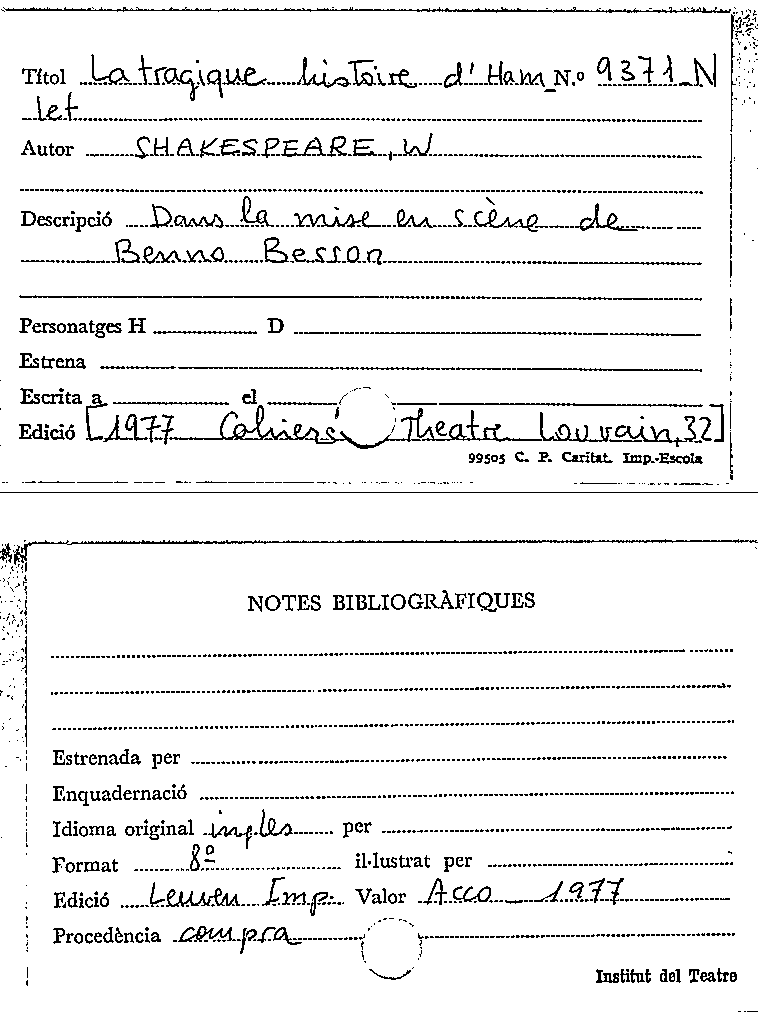 Títol La tragique histoire d'Ham N.º 9371-N
let
Autor SHAKESPEARE, W
Descripció Dans la mise en scène de
Benno Besson
Personatges H D
Estrena
Escrita a el
Edició [1977 Cahiers Theatre Louvain, 32]
99505 C. P. Caritat. Imp.-Escola
NOTES BIBLIOGRÀFIQUES
Estrenada per
Enquadernació
Idioma original ingles per
Format 8º il·lustrat per
Edició Leuven Imp. Valor Acco - 1977
Procedència compra
Institut del Teatre